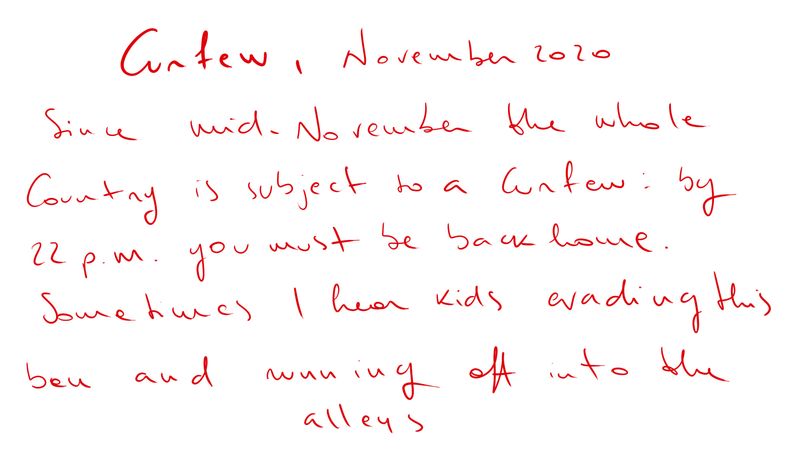 Curfew, November 2020
Since mid-November the whole
Country is subject to a Curfew: by
22 p.m. you must be back home.
Sometimes I hear kids evading this
ban and running off into the
alleys